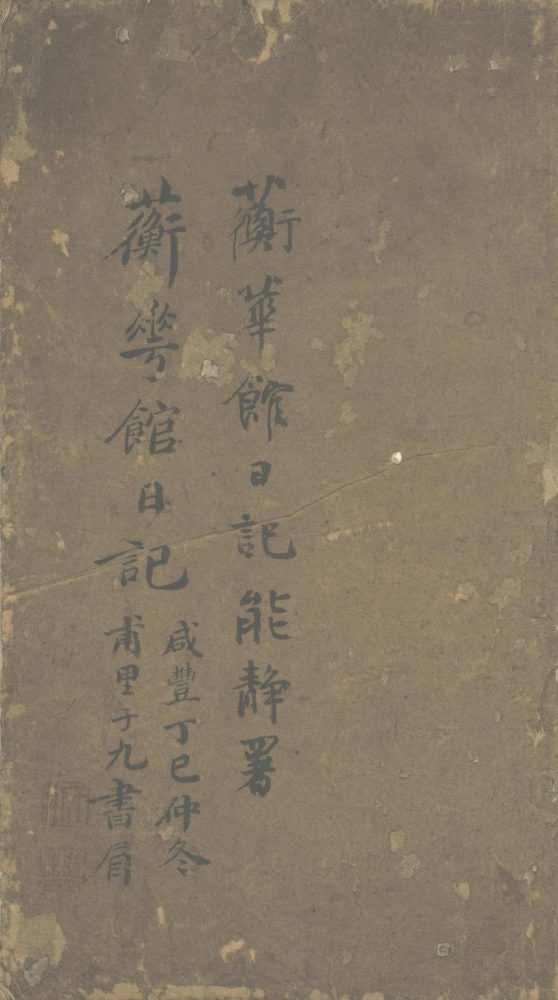 蘅華館日記能静署
蘅䔢館日記
咸豐丁巳仲冬
甫里子九書眉